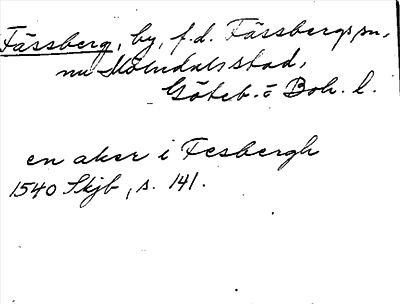 Fässberg, by, f.d. Fässbergs sn,
nu Mölndals stad,
Göteb. o Boh. l.
en aker i Fesbergh
1540 Skjb, s. 141.